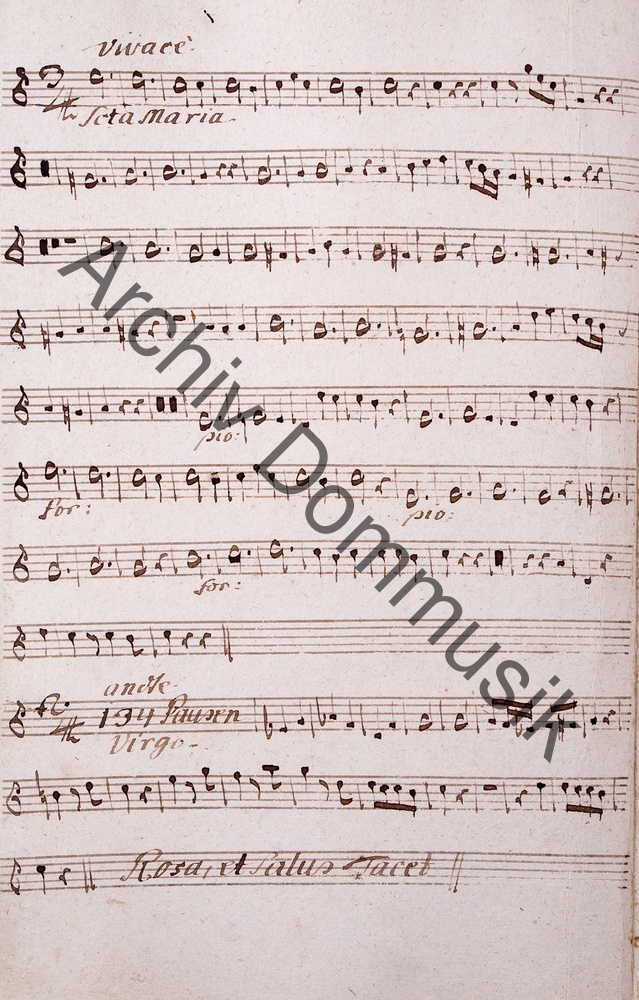 Vivacè
Scta Maria
pio:
for: pio:
for:
andte
134 Pausen
Virgo
Rosa, et Salus Tacet
Archiv Dommusik